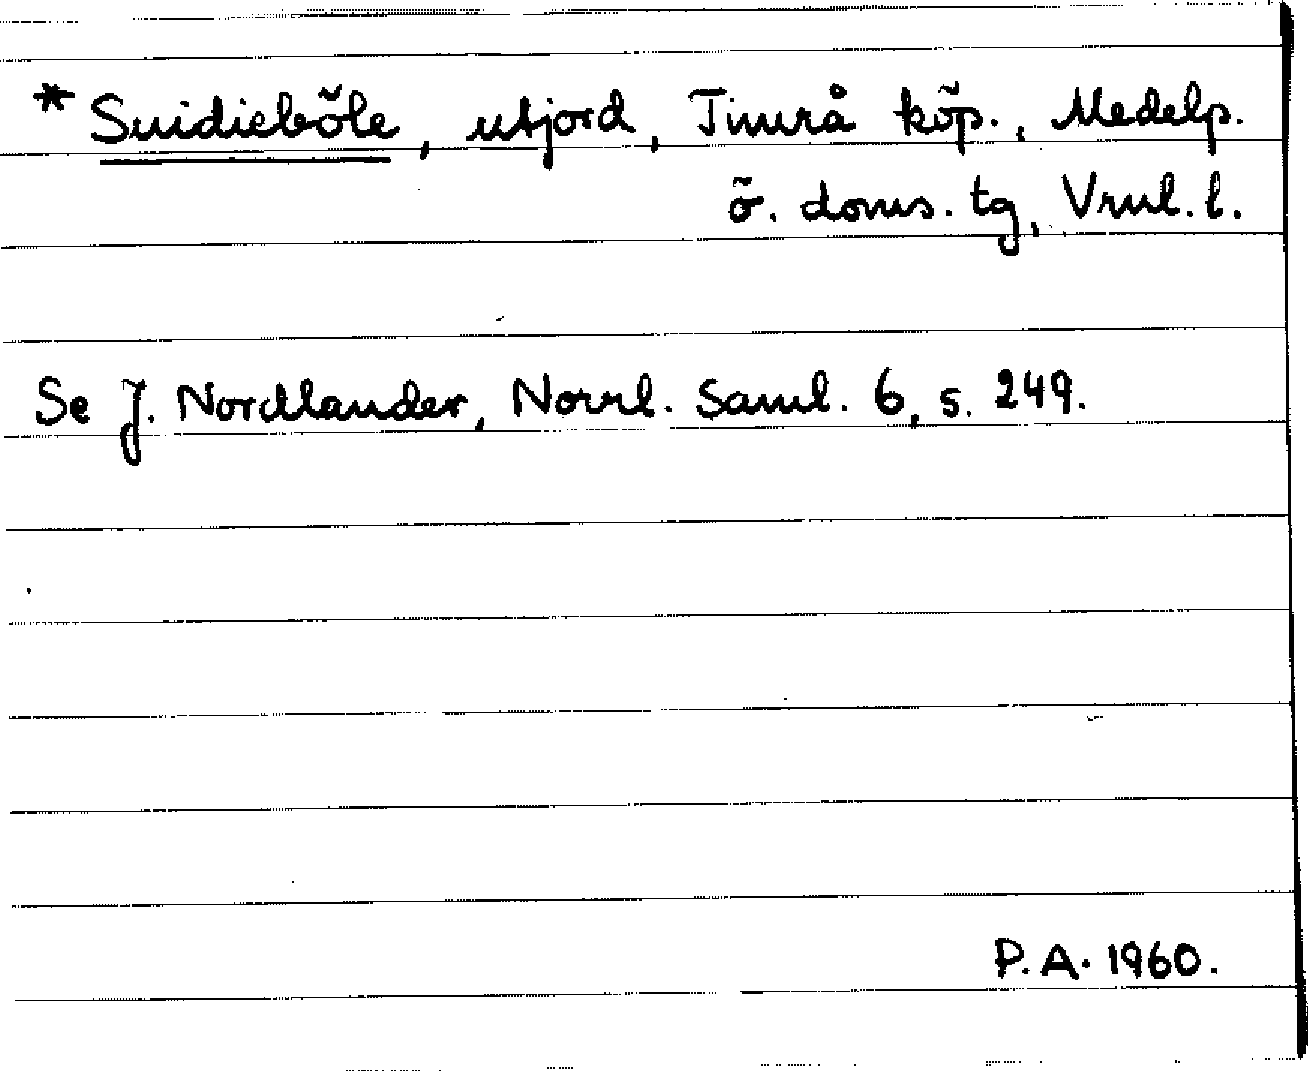 * Smidieböle, utjord, Timrå köp., Medelp.
ö. doms. tg, Vrnl. l.
Se J. Nordlander, Norrl. Saml. 6, s. 249.
P.A. 1960.